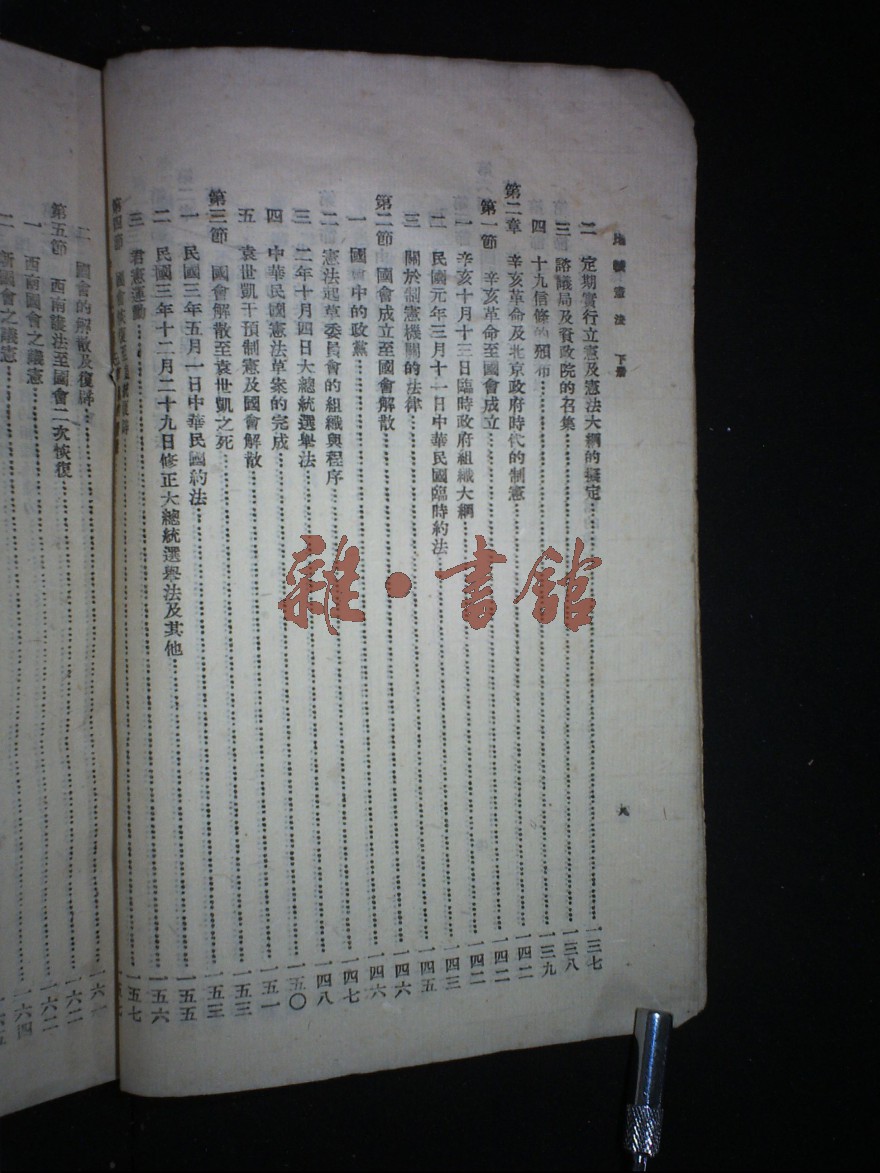 比較憲法　下册
八
二　定期實行立憲及憲法大綱的擬定……一三七
三　諮議局及資政院的召集……一三八
四　十九信條的頒布……一三九
第二章　辛亥革命及北京政府時代的制憲……一四二
第一節　辛亥革命至國會成立……一四二
一　辛亥十月十三日臨時政府組織大綱……一四三
二　民國元年三月十一日中華民國臨時約法……一四五
三　關於制憲機關的法律……一四六
第二節　國會成立至國會解散……一四六
一　國會中的政黨……一四七
二　憲法起草委員會的組織與程序……一四八
三　二年十月四日大總統選舉法……一五〇
四　中華民國憲法草案的完成……一五一
五　袁世凱干預制憲及國會解散……一五三
第三節　國會解散至袁世凱之死……一五三
一　民國三年五月一日中華民國約法……一五五
二　民國三年十二月二十九日修正大總統選舉法及其他……一五六
三　君憲運動……一五七
第四節　國會恢復至
二　國會的解散及復辟……一六一
第五節　西南護法至國會二次恢復……一六二
一　西南國會之議憲……一六二
二　新國會之議憲……
一六四
雜·書館